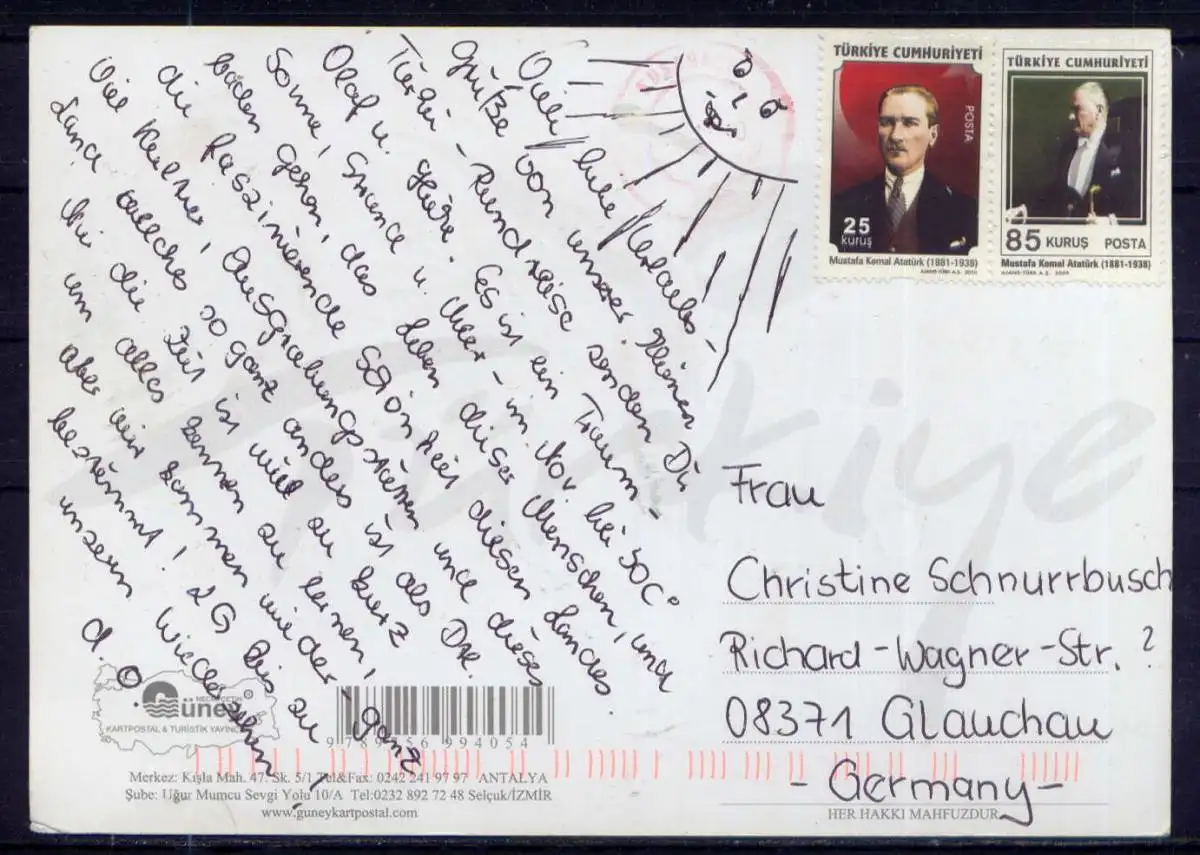 Viele liebe Urlaubs-
Grüße von unserer kleinen
Türkei-Rundreise senden Dir
Olaf u. Es ist ein Traum -
Sonne, Strände u. Meer - in Nov. bei 30C°
baden gehen, das Leben dieser Menschen, und
die faszinierende Schönheit dieses Landes.
Viel Kultur, Ausgrabungsstätten und dieses
Land welches so ganz anders ist als
die Zeit ist viel zu kurz
um alles kennen zu lernen,
aber wir kommen wieder - ganz
bestimmt! LG bis zu
unserem Wiedersehen!
d. O.
TÜRKİYE CUMHURİYETİ
POSTA
25
kuruş
Mustafa Kemal Atatürk (1881-1938)
AJANS-TÜRK A.Ş. 2010
TÜRKİYE CUMHURİYETİ
85 KURUŞ POSTA
Mustafa Kemal Atatürk (1881-1938)
AJANS-TÜRK A.Ş. 2009
Türkiye
Frau
Christine Schnurrbusch
Richard-Wagner-Str. ?
08371 Glauchau
- Germany -
Güney
KARTPOSTAL & TURİSTİK YAYINC
9 789756 994054
Merkez: Kışla Mah. 47. Sk. 5/1 Tel&Fax: 0242 241 97 97 ANTALYA
Şube: Uğur Mumcu Sevgi Yolu 10/A Tel:0232 892 72 48 Selçuk/İZMİR
www.guneykartpostal.com
HER HAKKI MAHFUZDUR